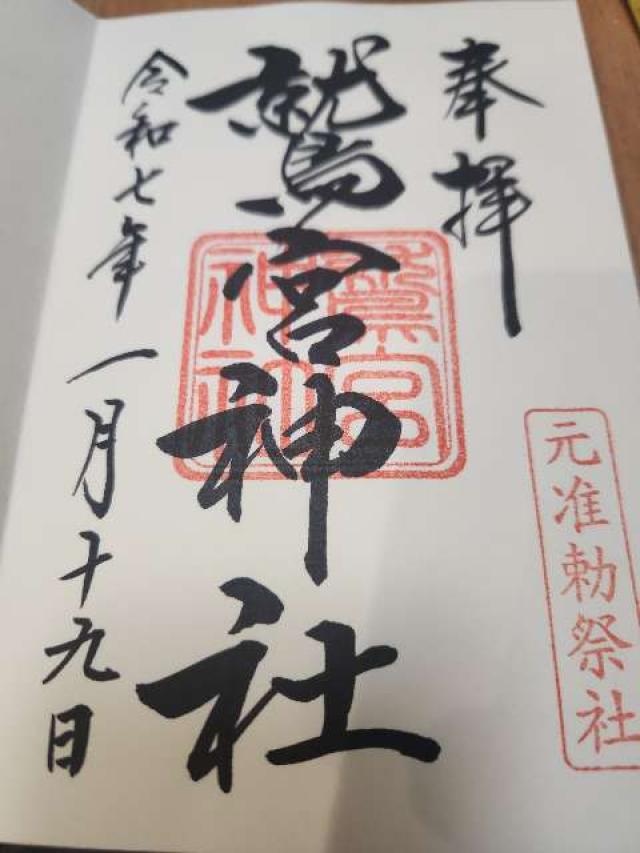 奉拝
元准勅祭社
鷲宮神社
鷲宮
神社
令和七年一月十九日